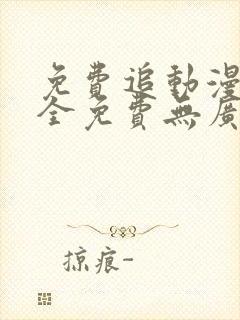 免費追動漫
全免費無廣
掠痕-